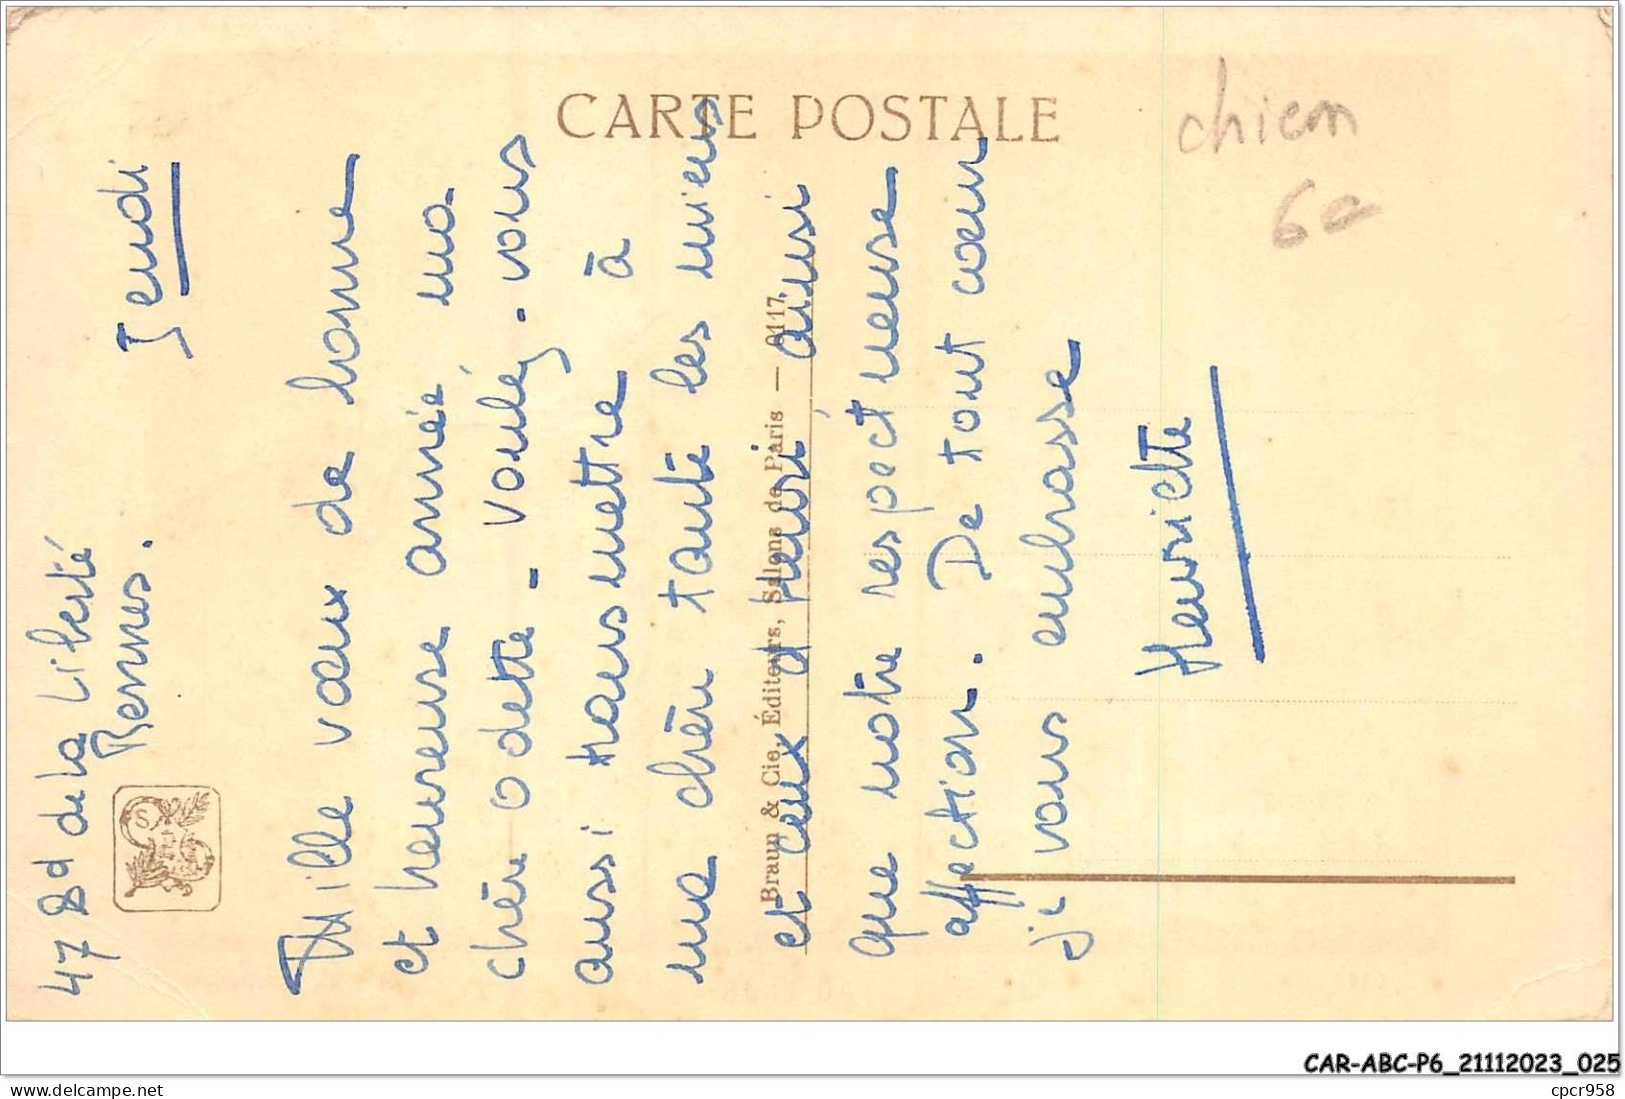 CARTE POSTALE
chien
60
47 Bd de la Liberté
Rennes.
Jeudi
Mille vœux de bonne
et heureuse année, ma
chère Odette - Voulez-vous
aussi transmettre à
ma chère tante les miens
et ceux d'Henri, ainsi
que notre respectueuse
affection. De tout cœur
je vous embrasse
Henriette
Braun & Cie, Éditeurs, Salons de Paris — 6117.
CAR-ABC-P6_21112023_025
delcampe.net
cpcr958